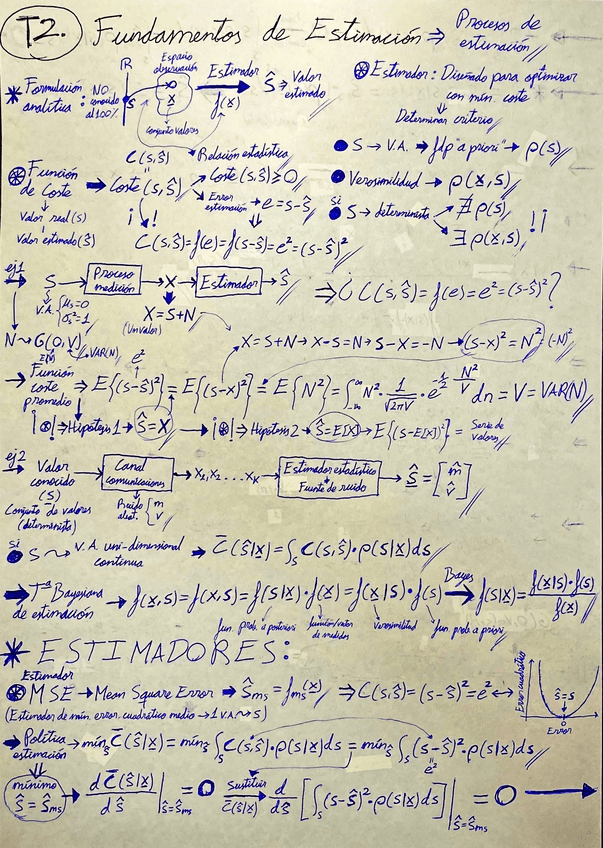 T2. Fundamentos de Estimación ⇒ Procesos de estimación
* Formulación analítica: NO conocido al 100%
R
S
Espacio observación
X
conjunto valores
Estimador
f(x)
Ŝ → Valor estimado
⊛ Estimador: Diseñado para optimizar con mín. coste
Determinar criterio
⊛ Función de Coste → Coste (s,ŝ)
C(s,ŝ)
Relación estadística
Coste (s,ŝ) ≥ 0
Error estimación → e = s-ŝ
Valor real (s)
Valor estimado (ŝ)
¡ !
C(s,ŝ) = f(e) = f(s-ŝ) = e² = (s-ŝ)²
● S → V.A. → fdp "a priori" → ρ(s)
● Verosimilitud → ρ(x,s)
si
● S → determinista
∄ ρ(s)
∃ ρ(x,s)
! ¡
ej1
S → Proceso medición → X → Estimador → ŝ
⇒ ¿ C(s,ŝ) = f(e) = e² = (s-ŝ)² ?
V.A. { μs=0 σs²=1
X = S+N
(Un valor)
N ~ G(0,V)
E(N)
VAR(N)
X = S+N → X = S+N → S-X = -N → (s-x)² = N² = (-N)²
e²
→ Función coste promedio → E{(s-ŝ)²} = E{(s-x)²} = E{N²} = ∫ N² · 1/√2πV · e^(-1/2 N²/V) dn = V = VAR(N)
¡⊛! ⇒ Hipótesis 1 → ŝ = X → ¡⊛! ⇒ Hipótesis 2 → ŝ = E[x] → E{(s-E[x])²} = Serie de valores
ej2
Valor conocido (S)
Canal comunicaciones → X1, X2 ... XK → Estimador estadístico Fuente de ruido → Ŝ = [m̂ v̂]
Conjunto de valores (determinista)
Ruido aleat. { m v
si
● S ~ V.A. uni-dimensional continua → C̄(ŝ|x) = ∫s C(s,ŝ)·ρ(s|x)ds
→ Tª Bayesiana de estimación → f(x,s) = f(x,s) = f(s|x)·f(x) = f(x|s)·f(s) Bayes → f(s|x) = f(x|s)·f(s) / f(x)
fun. prob. a posteriori
función/valor de medidas
verosimilitud
fun. prob. a priori
* ESTIMADORES:
Estimador
⊛ MSE → Mean Square Error → Ŝms = fms(x) ⇒ C(s,ŝ) = (s-ŝ)² = e² ↔
(Estimador de mín. error cuadrático medio → 1 V.A. → s)
Error cuadrático
ŝ=s
0
Error
→ Política estimación → mínŝ C̄(ŝ|x) = mínŝ ∫s C(s,ŝ)·ρ(s|x)ds = mínŝ ∫s (s-ŝ)²·ρ(s|x)ds
e²
mínimo ŝ = ŝms → d C̄(ŝ|x) / dŝ |ŝ=ŝms = 0 Sustituir C̄(ŝ|x) → d/dŝ [∫s (s-ŝ)²·ρ(s|x)ds] |ŝ=ŝms = 0 →